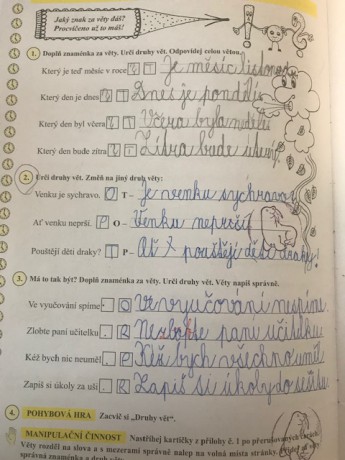 Jaký znak za věty dáš?
Procvičeno už to máš!
1. Doplň znaménka za věty. Urči druhy vět. Odpovídej celou větou.
Který je teď měsíc v roce ? T Je měsíc listopad.
Který den je dnes ? T Dnes je pondělí.
Který den byl včera ? T Včera byla neděle.
Který den bude zítra ? T Zítra bude úterý.
2. Urči druhy vět. Změň na jiný druh věty:
Venku je sychravo. O T – Je venku sychravo?
Ať venku neprší. P O – Venku neprší.
Pouštějí děti draky? T P – Ať pouštějí děti draky!
3. Má to tak být? Doplň znaménka za věty. Urči druhy vět. Věty napiš správně.
Ve vyučování spíme . O Ve vyučování nespíme.
Zlobte paní učitelku . R Nezlobte paní učitelku.
Kéž bych nic neuměl . P Kéž bych všechno uměl.
Zapiš si úkoly za uši . R Zapiš si úkoly do sešitu.
4. POHYBOVÁ HRA Zacvič si „Druhy vět“.
MANIPULAČNÍ ČINNOST Nastříhej kartičky z přílohy č. 1 po přerušovaných čarách.
Věty rozděl na slova a s mezerami správně nalep na volná místa stránky.
správná znaménka a druhy